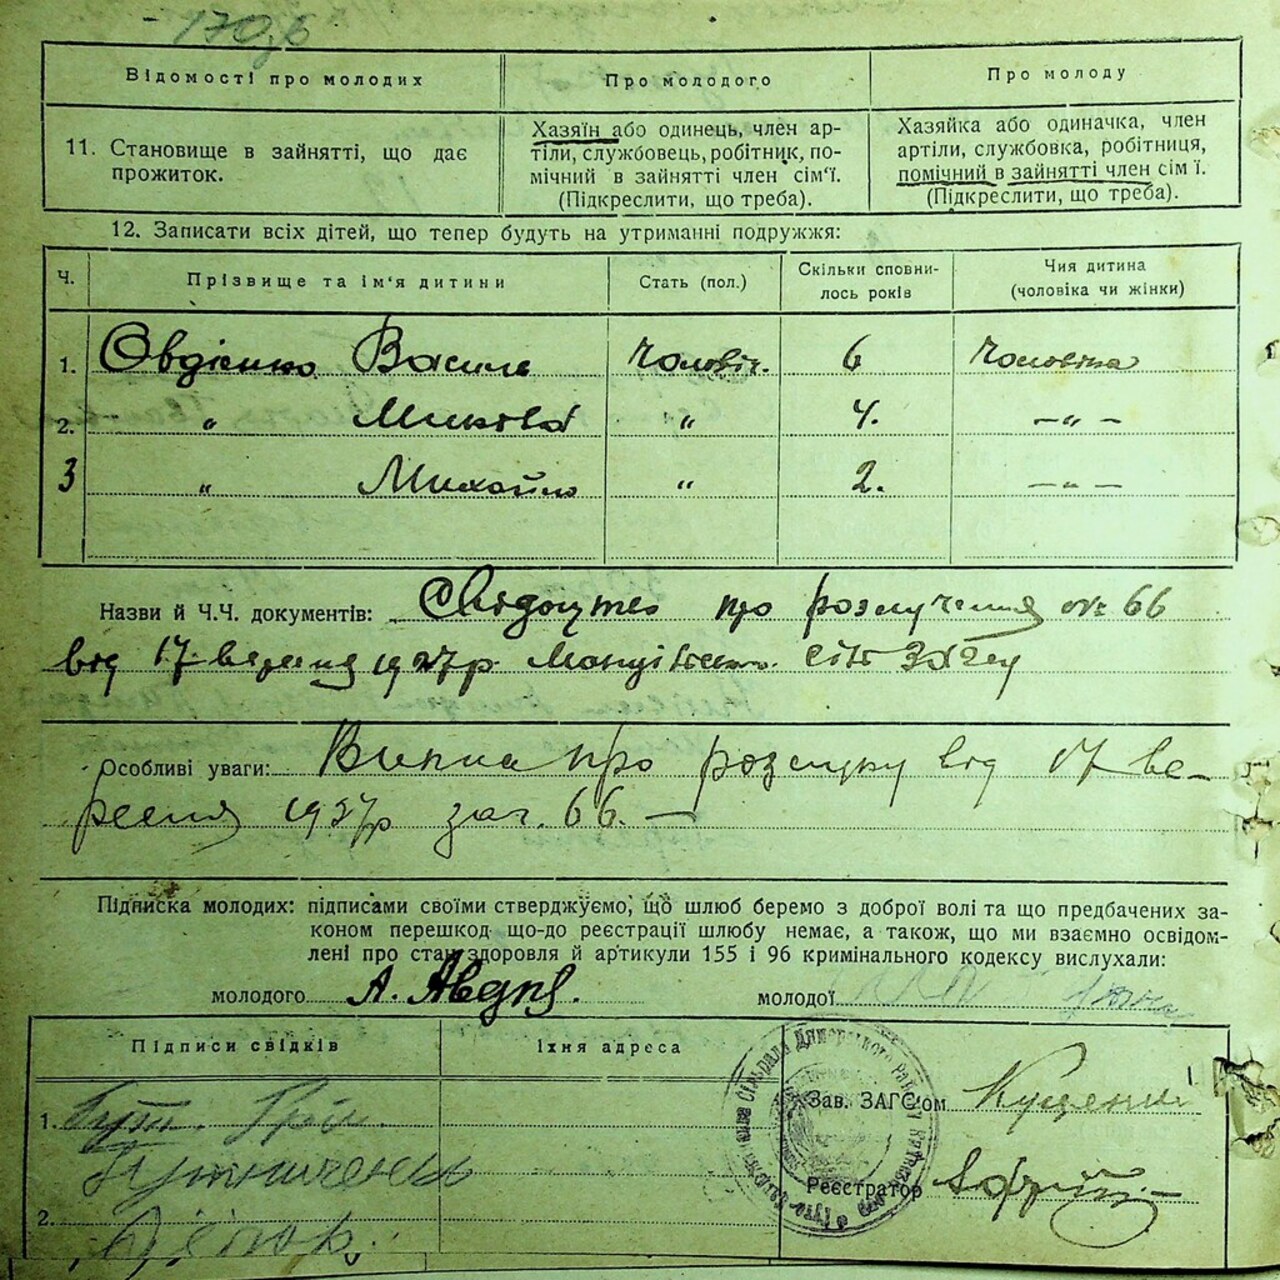 Відомості про молодих
Про молодого
Про молоду
11. Становище в зайнятті, що дає
прожиток.
Хазяїн або одинець, член ар-
тіли, службовець, робітник, по-
мічний в зайнятті член сім'ї.
(Підкреслити, що треба).
Хазяйка або одиначка, член
артіли, службовка, робітниця,
помічний в зайнятті член сім ї.
(Підкреслити, що треба).
12. Записати всіх дітей, що тепер будуть на утриманні подружжя:
Ч.
Прізвище та ім'я дитини
Стать (пол.)
Скільки сповни-
лось років
Чия дитина
(чоловіка чи жінки)
1. Овдієнко Василь чоловіч. 6 Чоловіка
2. " Микола " 4. — " —
3 " Михайло " 2. — " —
Назви й Ч.Ч. документів: Свідоцтво про розлучення № 66
від 17 вересня 1927р.
Особливі уваги: Виписка про розлуку від 17 ве-
ресня 1927р заг. 66. —
Підписка молодих: підписами своїми стверджуємо, що шлюб беремо з доброї волі та що предбачених за-
коном перешкод що-до реєстрації шлюбу немає, а також, що ми взаємно освідом-
лені про стан здоровля й артикули 155 і 96 кримінального кодексу вислухали:
молодого
молодої
Підписи свідків
Їхня адреса
1.
2.
Зав. ЗАГС'ом
Реєстратор